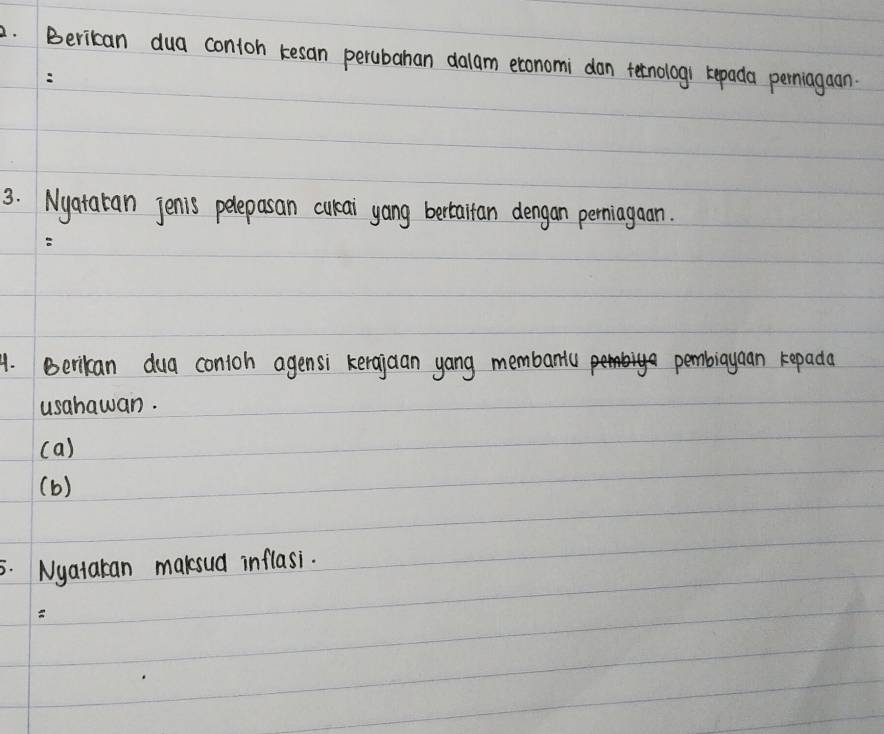 2. Berikan dua contoh kesan perubahan dalam ekonomi dan teknologi kepada perniagaan.
=
3. Nyatakan jenis pelepasan cukai yang berkaitan dengan perniagaan.
=
4. Berikan dua contoh agensi kerajaan yang membantu pembiya pembiayaan kepada
usahawan.
(a)
(b)
5. Nyatakan maksud inflasi.
=